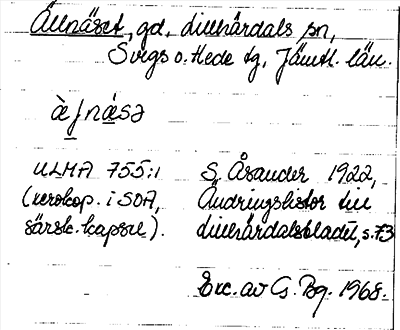 Ällnäset, gd, Lillhärdals sn,
Svegs o. Hede tg, Jämtl. län.
ULMA 755:1 S. Åsander 1922,
(xerokop. i SOA, Ändringslistor till
särsk. kapsel). Lillhärdalsbladet, s. 73
Exc. av G. Bg. 1968.